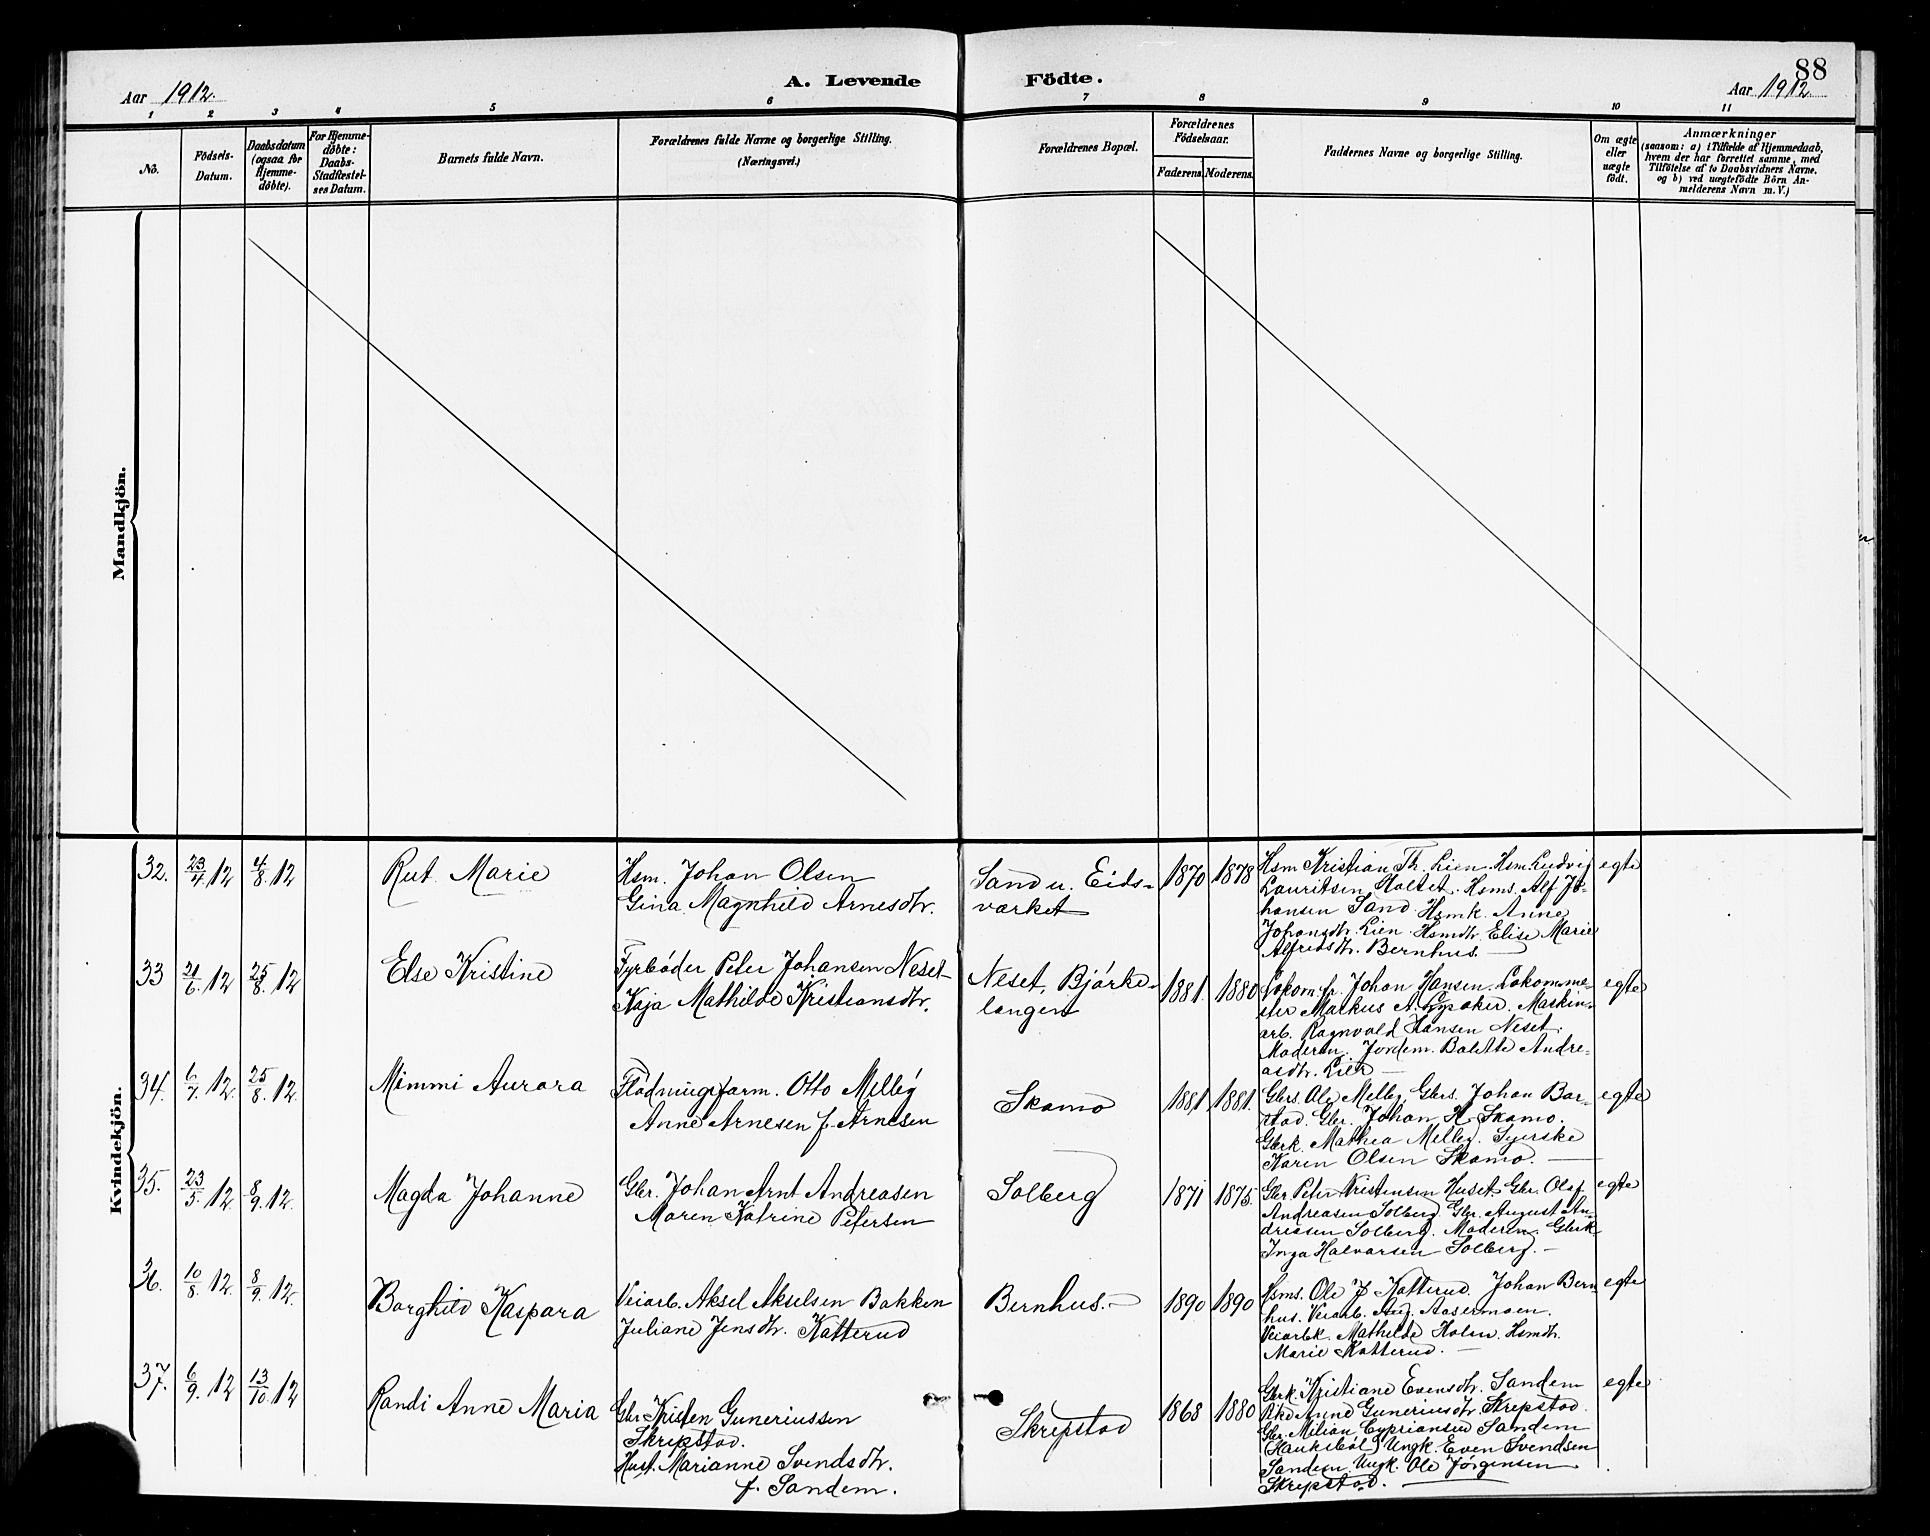 88
Aar 1912. A. Levende Födte. Aar 1912.
1 2 3 4 5 6 7 8 9 10 11
No.
Födsels-
Datum.
Daabsdatum
(ogsaa for
Hjemme-
döbte).
For Hjemme-
döbte:
Daabs-
Stadfæstel-
ses Datum.
Barnets fulde Navn.
Forældrenes fulde Navne og borgerlige Stilling.
(Næringsvei.)
Forældrenes Bopæl.
Forældrenes
Födselsaar.
Faderens. Moderens.
Faddernes Navne og borgerlige Stilling.
Om ægte
eller
uægte
födt.
Anmærkninger
(saasom: a) i Tilfælde af Hjemmedaab,
hvem der har forrettet samme, med
Tilföielse af to Daabsvidners Navne.
og b) ved uægtefödte Börn An-
melderens Navn m. V.)
Mandkjön.
Kvindekjön.
32. 23/4 12 4/8 12 Rut Marie
Hsm. Johan Olsen
Gina Magnhild Arnesdtr.
Sand u. Eids-
værket
1870 1878
Hsm Kristian Th. Lien. Hsm. Ludvig
Lauritsen Holtet. Hsms. Alf Jo-
hansen Sand. Hsmk. Anne
Johansdtr. Lien. Hsmdtr. Elise Marie
Alfredsdtr. Bernhus.
egte
33 21/6 12 25/8 12 Else Kristine
Fyrbøder Peter Johansen Neset
Kaja Mathilde Kristiansdtr.
Neset, Bjørke-
langen
1881. 1880
Lokom.f. Johan Hansen. Lokomme-
ster Markus A. Lysaker. Maskin-
arb. Ragnvald Hansen Neset.
Moderen. Jordem. Bolette Andre-
asdtr. Lier
egte
34. 6/7 12. 25/8 12. Mimmi Aurora
Flødningsform. Otto Melleg
Anne Arnesen f. Arnesen
Skamo
1881 1881.
Gbrs. Ole Melleg. Gbrs. Johan Bar-
stad. Gbr. Johan H. Skamo.
Gbrk. Mathea Melleg. Syerske
Karen Olsen Skamo.
egte
35. 23/5 12. 8/9 12. Magda Johanne
Gbr. Johan Arnt Andreasen
Maren Katrine Petersen
Solberg
1871 1875.
Gbr Peter Kristensen Huset. Gbr. Olaf
Andreasen Solberg. Gbr. August An-
dreasen Solberg. Moderen. Gbrk
Inga Halvorsen Solberg.
egte
36. 10/8 12. 8/9 12. Borghild Kaspara
Veiarb. Aksel Akselsen Bakken
Juliane Jensdtr. Katterud
Bernhus.
1890 1890
Hsms. Ole J. Katterud. Johan Bern
hus. Veiarb. Aug. Aasermoen.
Veiarbk. Mathilde Holm. Hsmdtr.
Marie Katterud.
egte
37. 6/9 12 13/10 12 Randi Anne Maria
Gbr. Kristen Guneriussen
Skrepstad.
Hust. Marianne Svendsdtr.
f. Sandem.
Skrepstad
1868 1880
Gbrk. Kristiane Evensdtr. Sandem
Pike Anne Guneriusdtr. Skrepstad.
Gbr. Milian Cypriansen Sandem
(Haukebøl) Ungk. Even Svendsen
Sandem. Ungk. Ole Jørgensen
Skrepstad.
egte